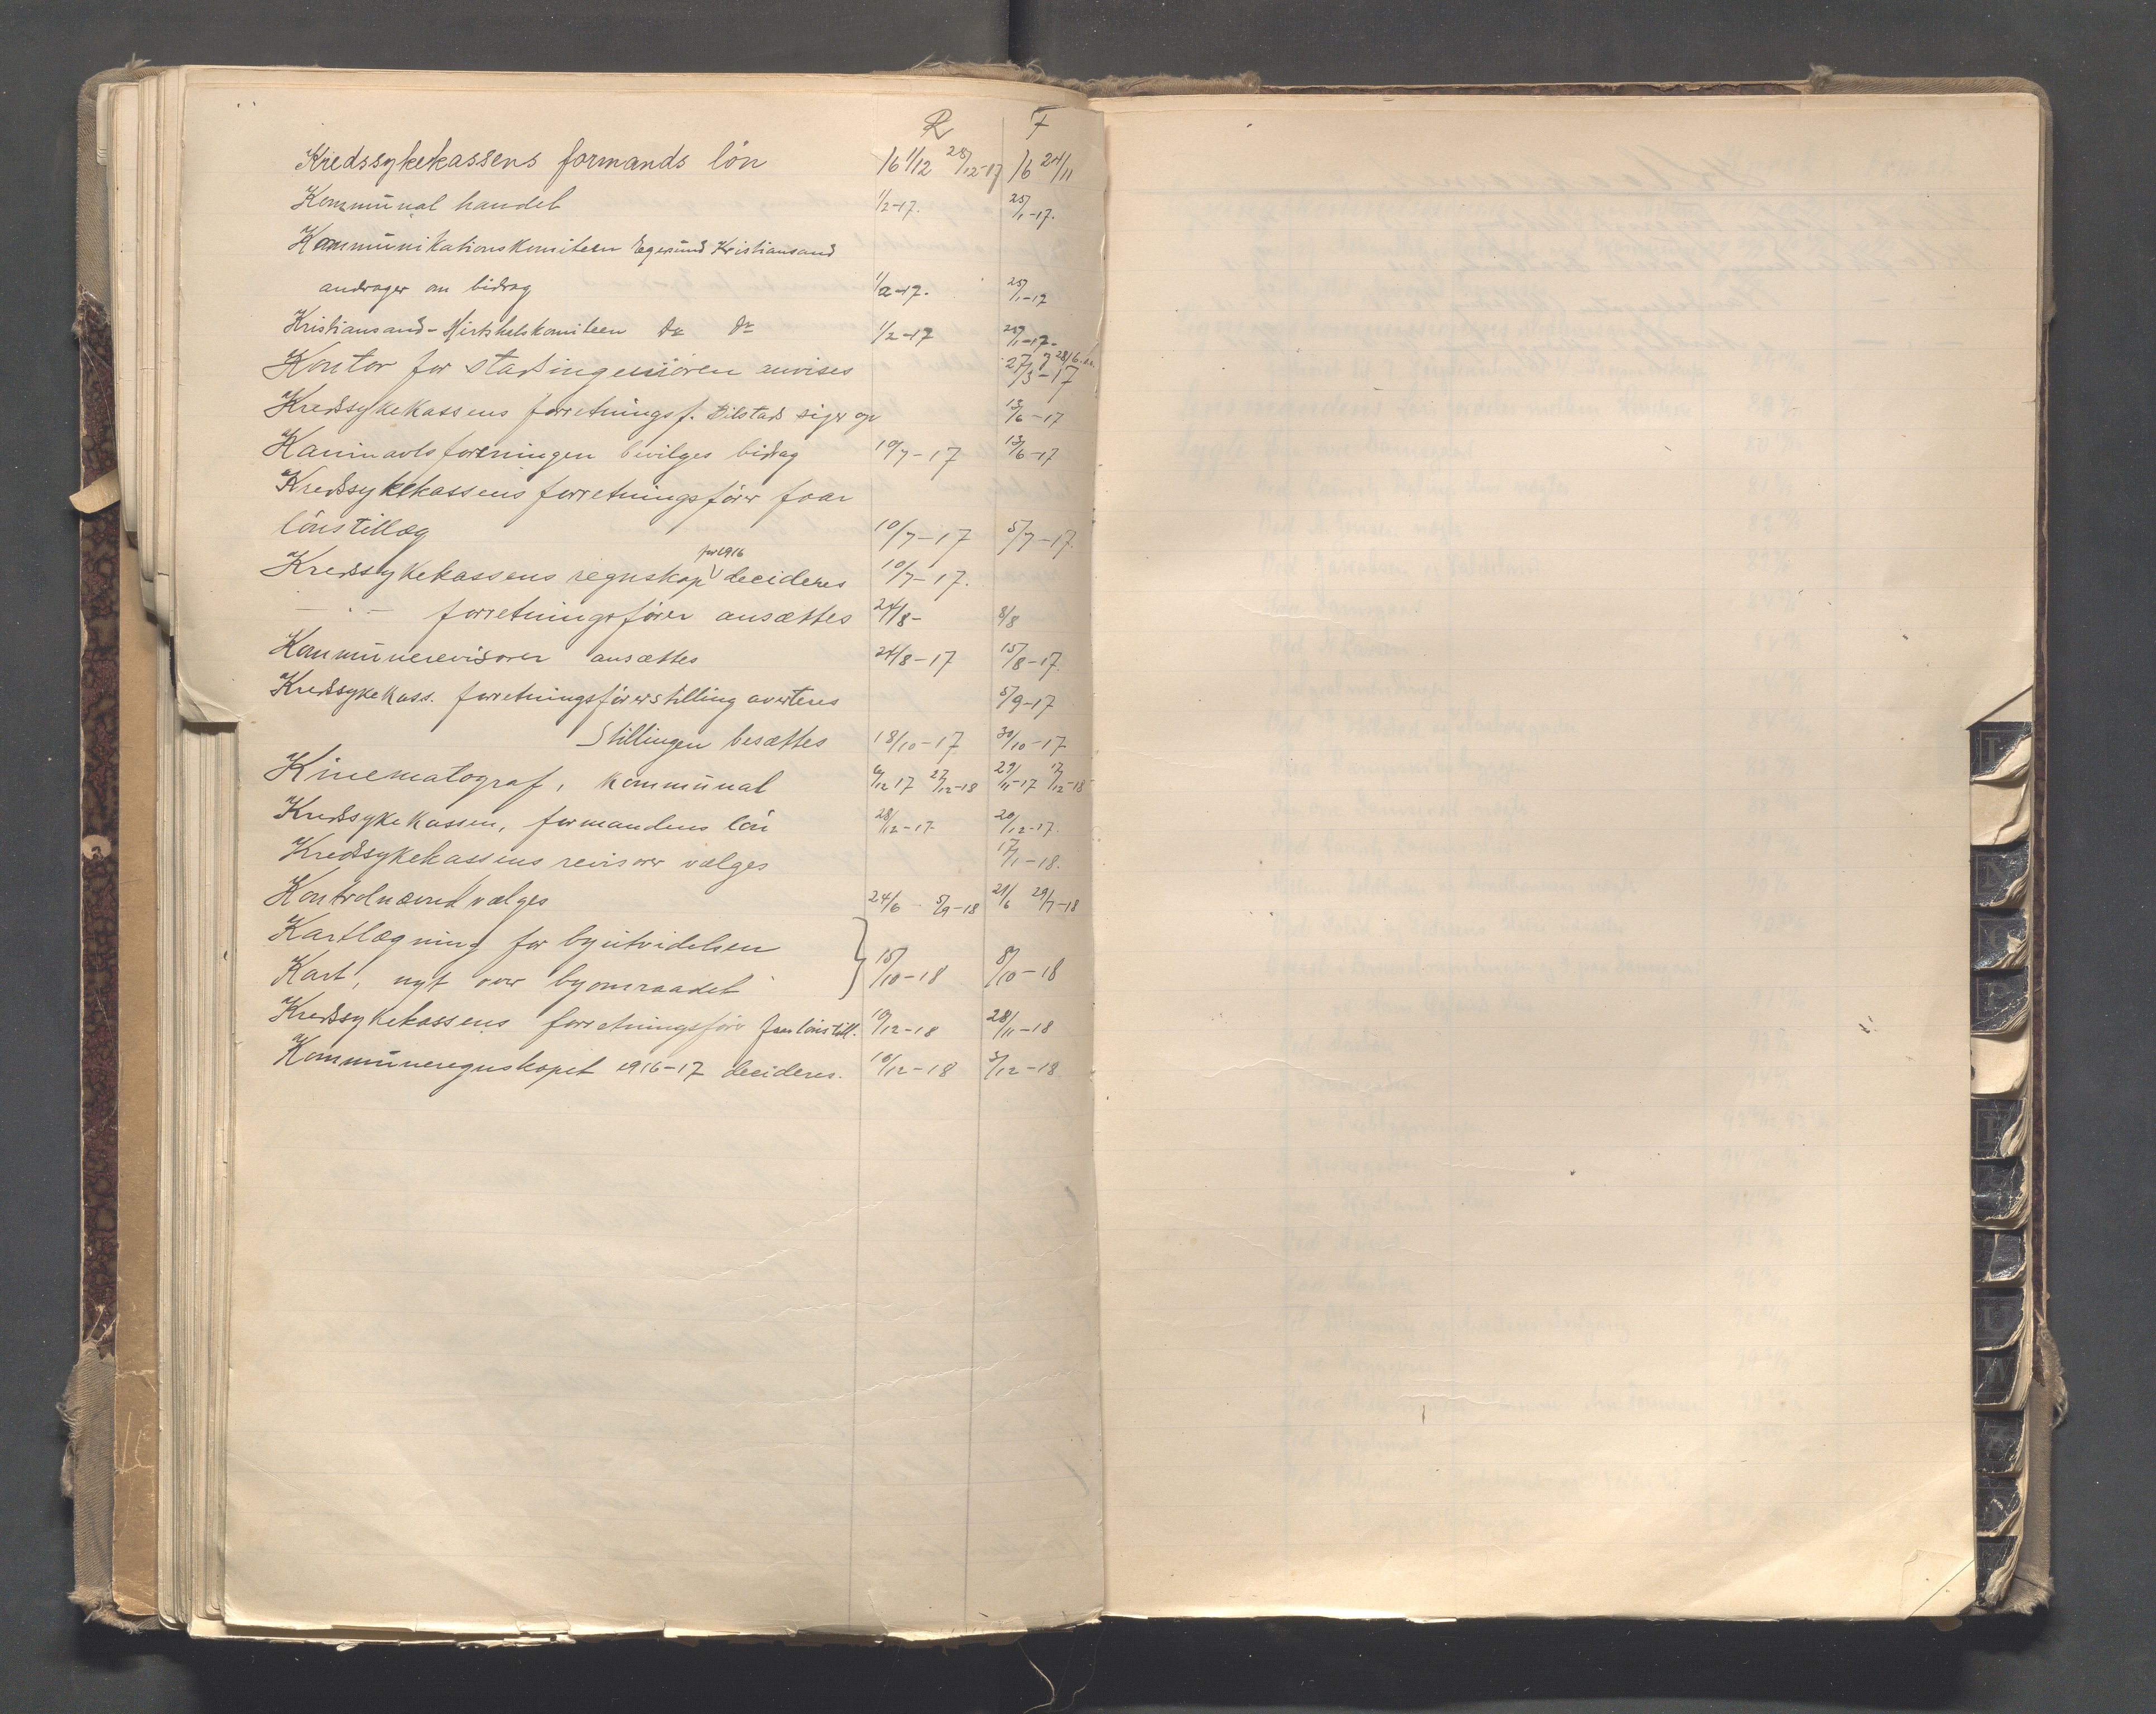 R F
Kredssykekassens formands lön 16 1/12 28/12-17 16 24/11
Kommunal handel 1/2-17. 25/1-17.
Kommunikationskomiteen Egersund Kristiansand
andrager om bidrag 1/2-17. 25/1-17
Kristiansand-Hirtshalskomiteen do do 1/2-17 25/1-17-
Kontor for stadsingeniören anvises 27/3-17 28/6
Kredssykekassens forretningsf. Bilstad siger op 13/6-17
Kaninavlsforeningen bevilges bidrag 10/7-17 13/6-17
Kredssykekassens forretningsförer faar
lönstillæg 10/7-17 5/7-17.
Kredssykekassens regnskap for 1916 decideres 10/7-17.
— " — forretningsförer ansættes 24/8- 8/8
Kommunerevisorer ansættes 24/8-17 15/8-17.
Kredssykekass. forretningsförerstilling averteres 5/9-17
Stillingen besættes 18/10-17 30/10-17
Kinematograf, kommunal 6/12 17 27/12-18 29/11-17 17/12-18
Kredssykekassen, formandens lön 28/12-17- 20/12-17.
Kredssykekassens revisorer vælges 17/1-18.
Kontrolnævnd vælges 24/6 5/9-18 21/6 29/7-18
Kartlægning for byutvidelsen
Kart, nyt over byomraadet 15/10-18 8/10-18
Kredssykekassens forretningsförer faar lönstill. 10/12-18 28/11-18
Kommuneregnskapet 1916-17 decideres. 10/12-18 3/12-18